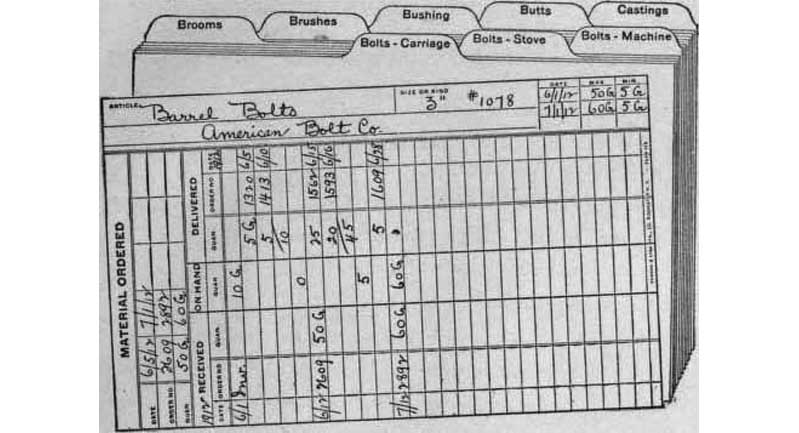 Brooms Brushes Bushing Butts Castings
Bolts - Carriage Bolts - Stove Bolts - Machine
ARTICLE Barrel Bolts SIZE OR KIND 3" #1078
American Bolt Co.
DATE MAX. MIN.
6/1/12 50G 5G
7/1/12 60G 5G
MATERIAL ORDERED
DATE 6/5/12 7/1/12
ORDER NO 2609 2892
QUAN 50G 60G
1912 RECEIVED ON HAND DELIVERED
DATE ORDER NO QUAN QUAN QUAN ORDER NO DATE 1912
6/1 Inv. 10 G 5 G 1320 6/5
5 1413 6/10
10
0
6/12 2609 50G 25 1562 6/15
20 1593 6/16
45
5
5 1609 6/28
7/12 2892 60G 60G